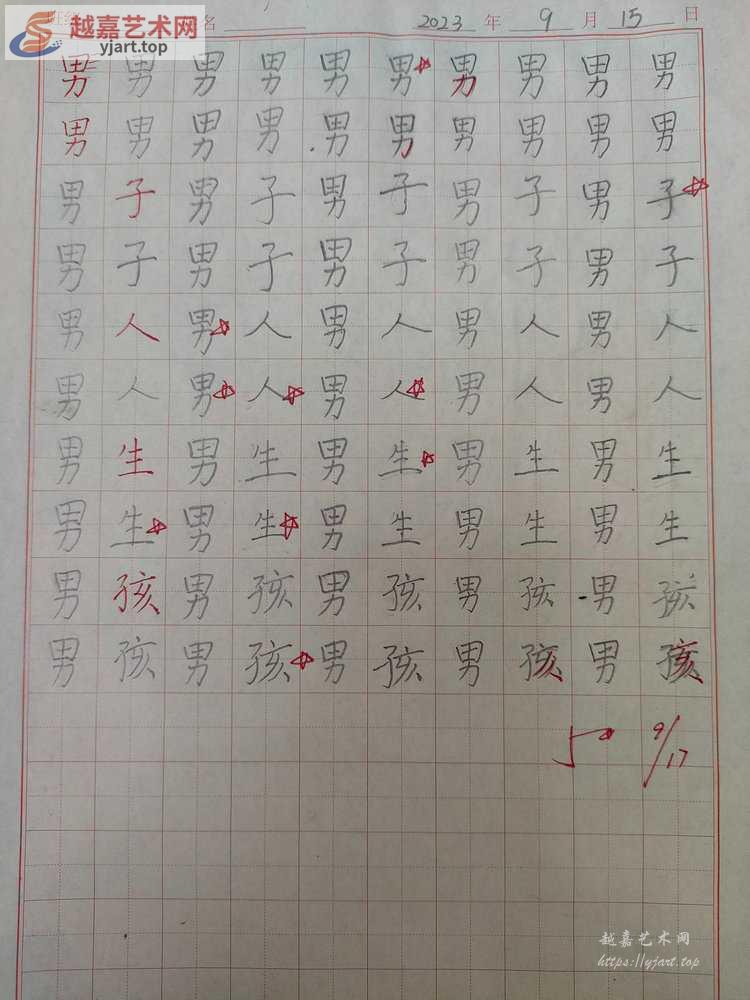 越嘉艺术网
yjart.top
名 2023 年 9 月 15 日
男 男 男 男 男 男 男 男 男 男
男 男 男 男 男 男 男 男 男 男
男 子 男 子 男 子 男 子 男 子
男 子 男 子 男 子 男 子 男 子
男 人 男 人 男 人 男 人 男 人
男 人 男 人 男 人 男 人 男 人
男 生 男 生 男 生 男 生 男 生
男 生 男 生 男 生 男 生 男 生
男 孩 男 孩 男 孩 男 孩 男 孩
男 孩 男 孩 男 孩 男 孩 男 孩
9/17
越嘉艺术网
https://yjart.top